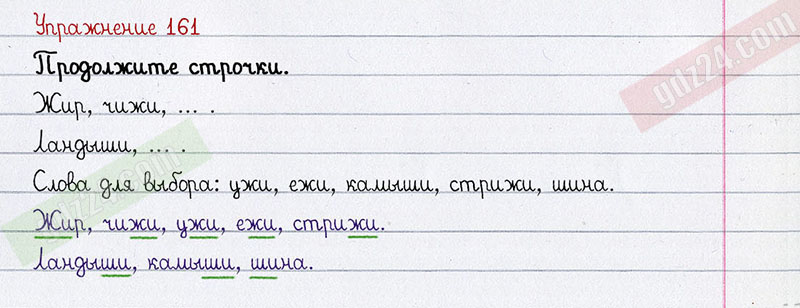 Упражнение 161
Продолжите строчки.
Жир, чижи, ... .
Ландыши, ... .
Слова для выбора: ужи, ежи, камыши, стрижи, шина.
Жир, чижи, ужи, ежи, стрижи.
Ландыши, камыши, шина.
gdz24.com
gdz24.com